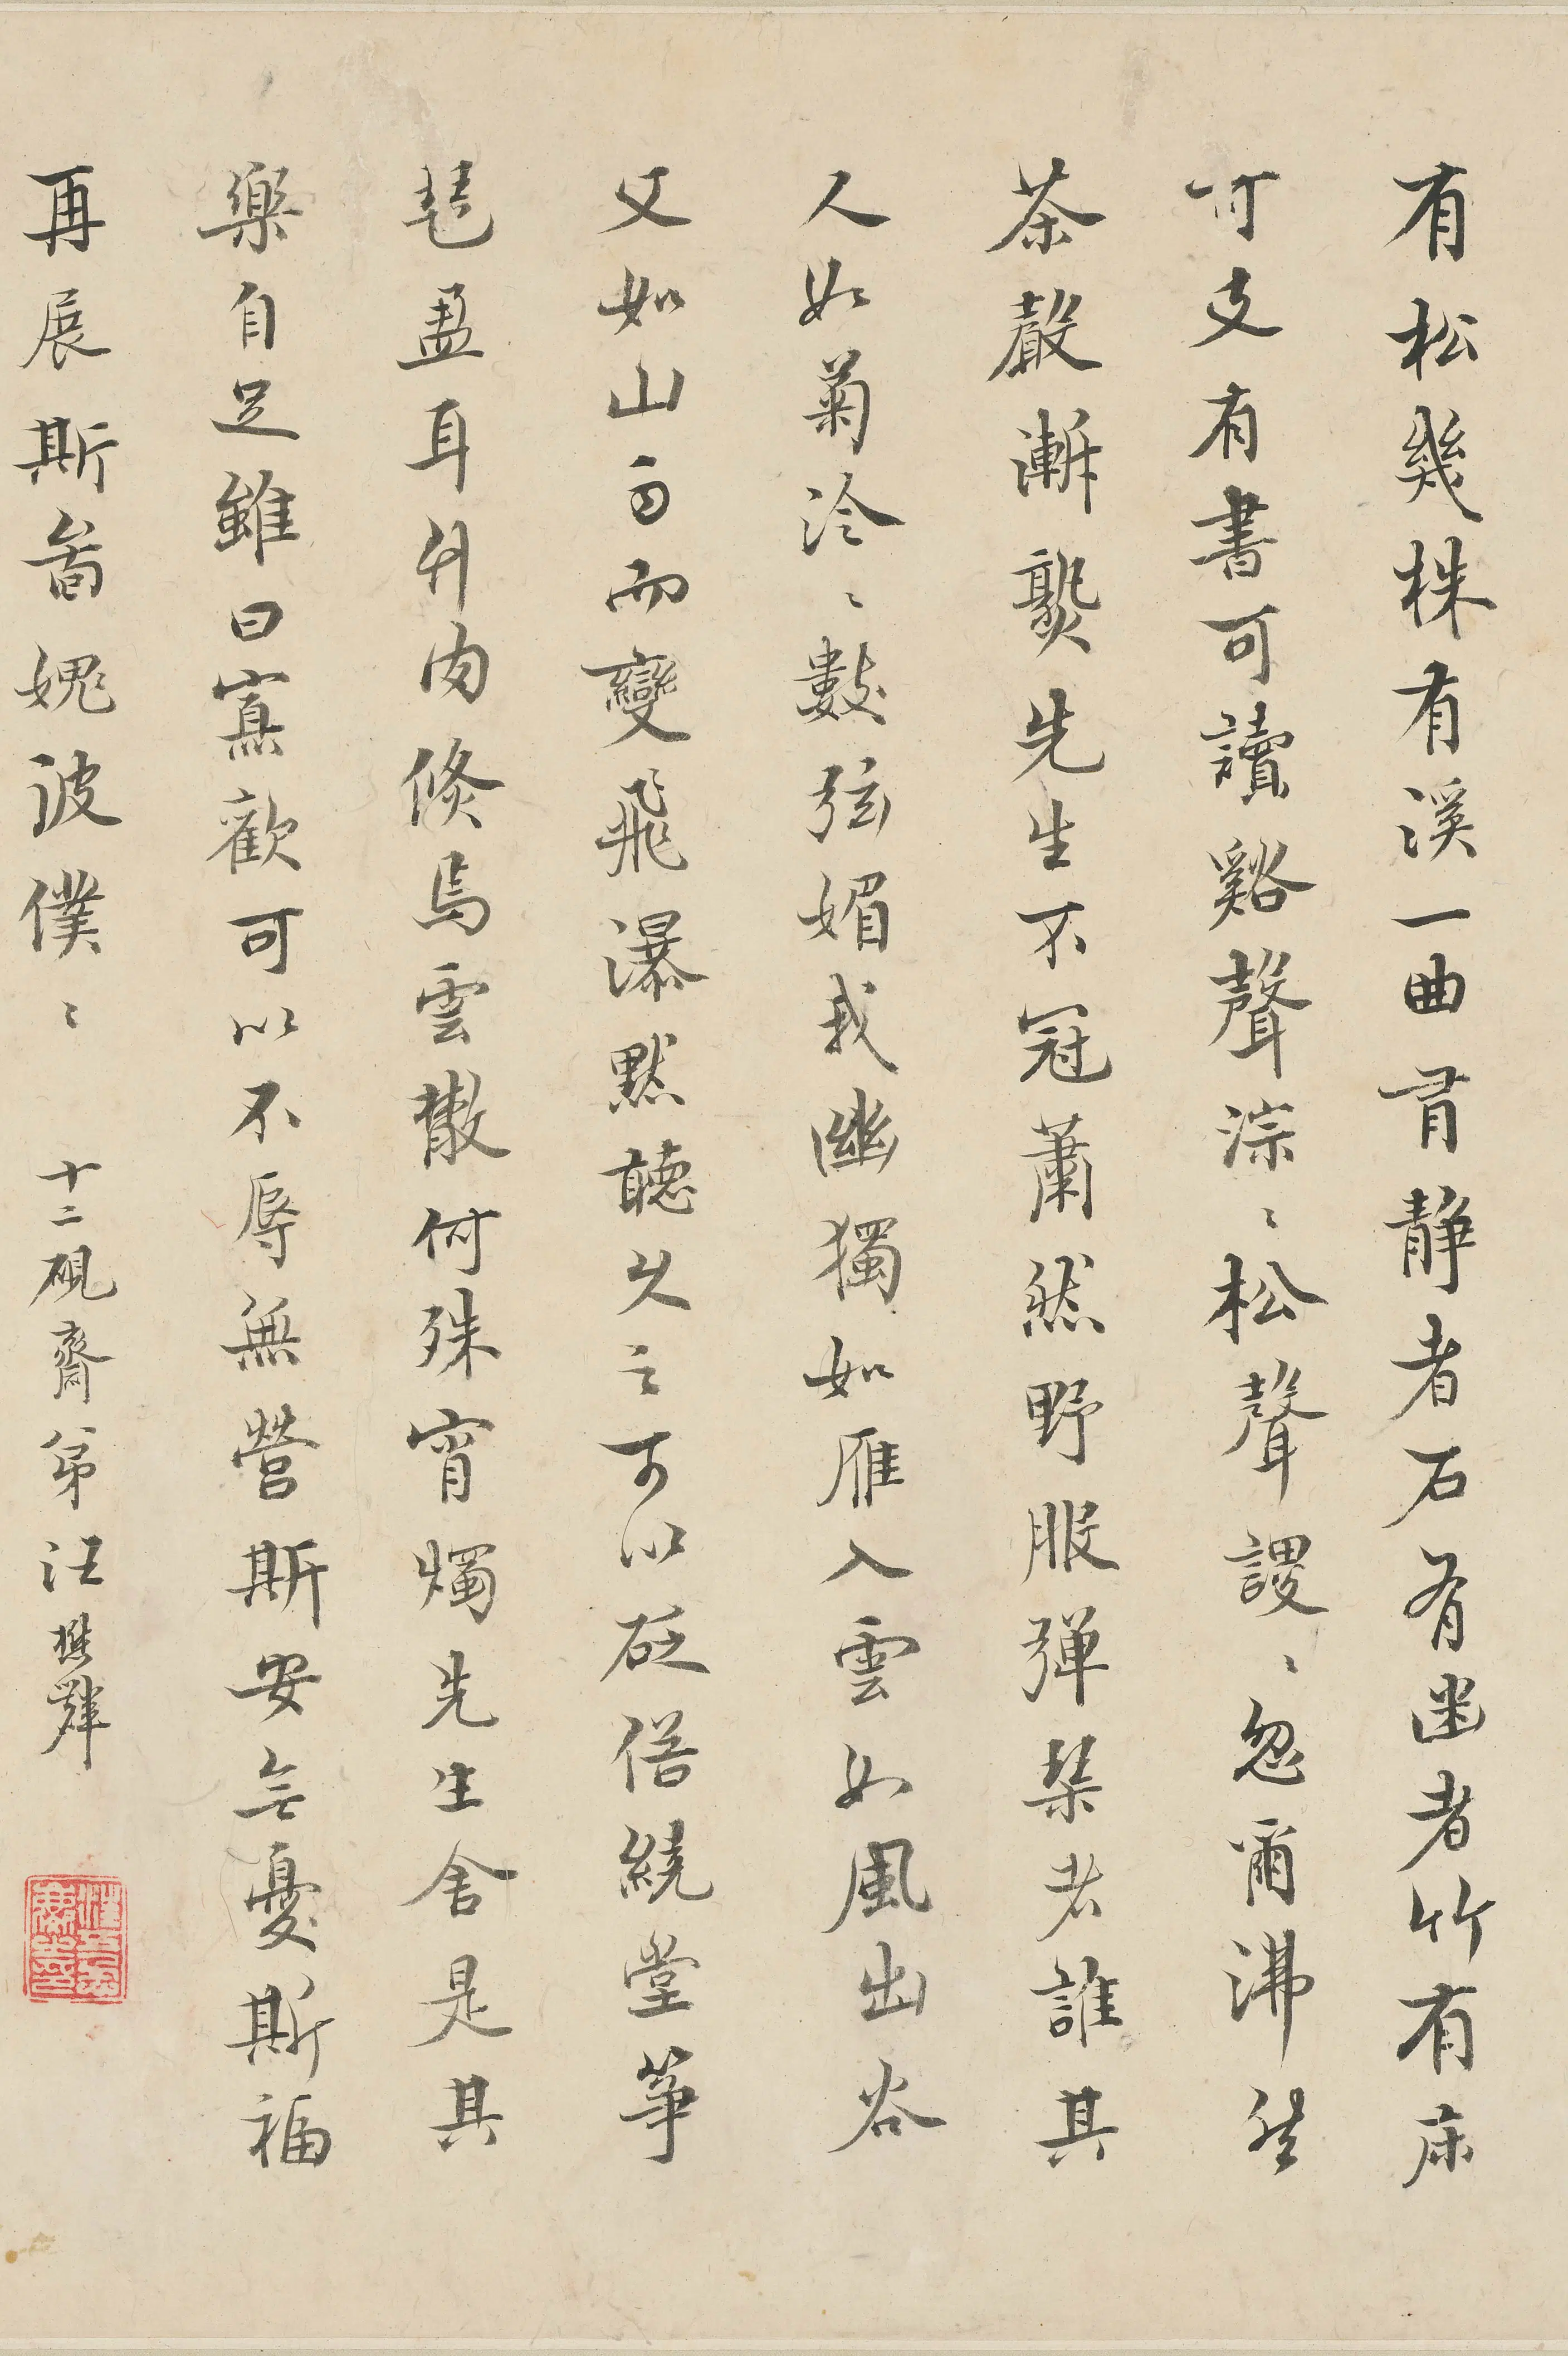 有松幾株有溪一曲有靜者石有幽者竹有床
可支有書可讀谿聲淙〻松聲謖〻忽爾沸然
茶聲漸熟先生不冠蕭然野服彈琴者誰其
人如菊泠〻數弦媚我幽獨如雁入雲如風出谷
又如山雨而變飛瀑默聽久之可以砭俗繞堂箏
琶盈耳竹肉倏焉雲散何殊宵燭先生舍是其
樂自足雖曰寡歡可以不辱無營斯安无憂斯福
再展斯圖媿波僕〻 十二硯齋弟汪懋麟